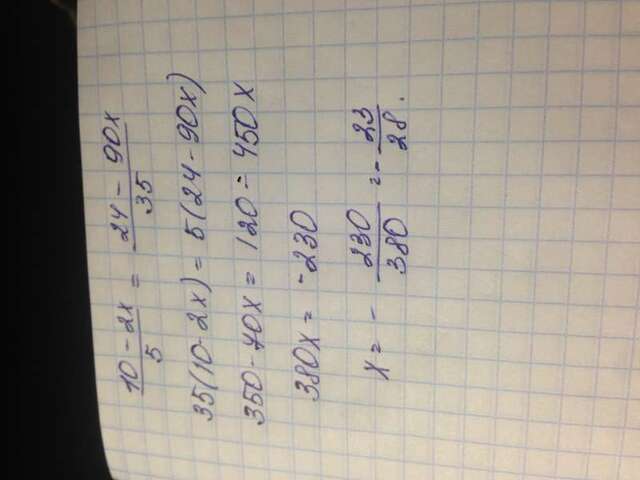 10 - 2x / 5 = 24 - 90x / 35
35(10 - 2x) = 5(24 - 90x)
350 - 70x = 120 - 450x
380x = -230
x = - 230 / 380 = - 23 / 28.